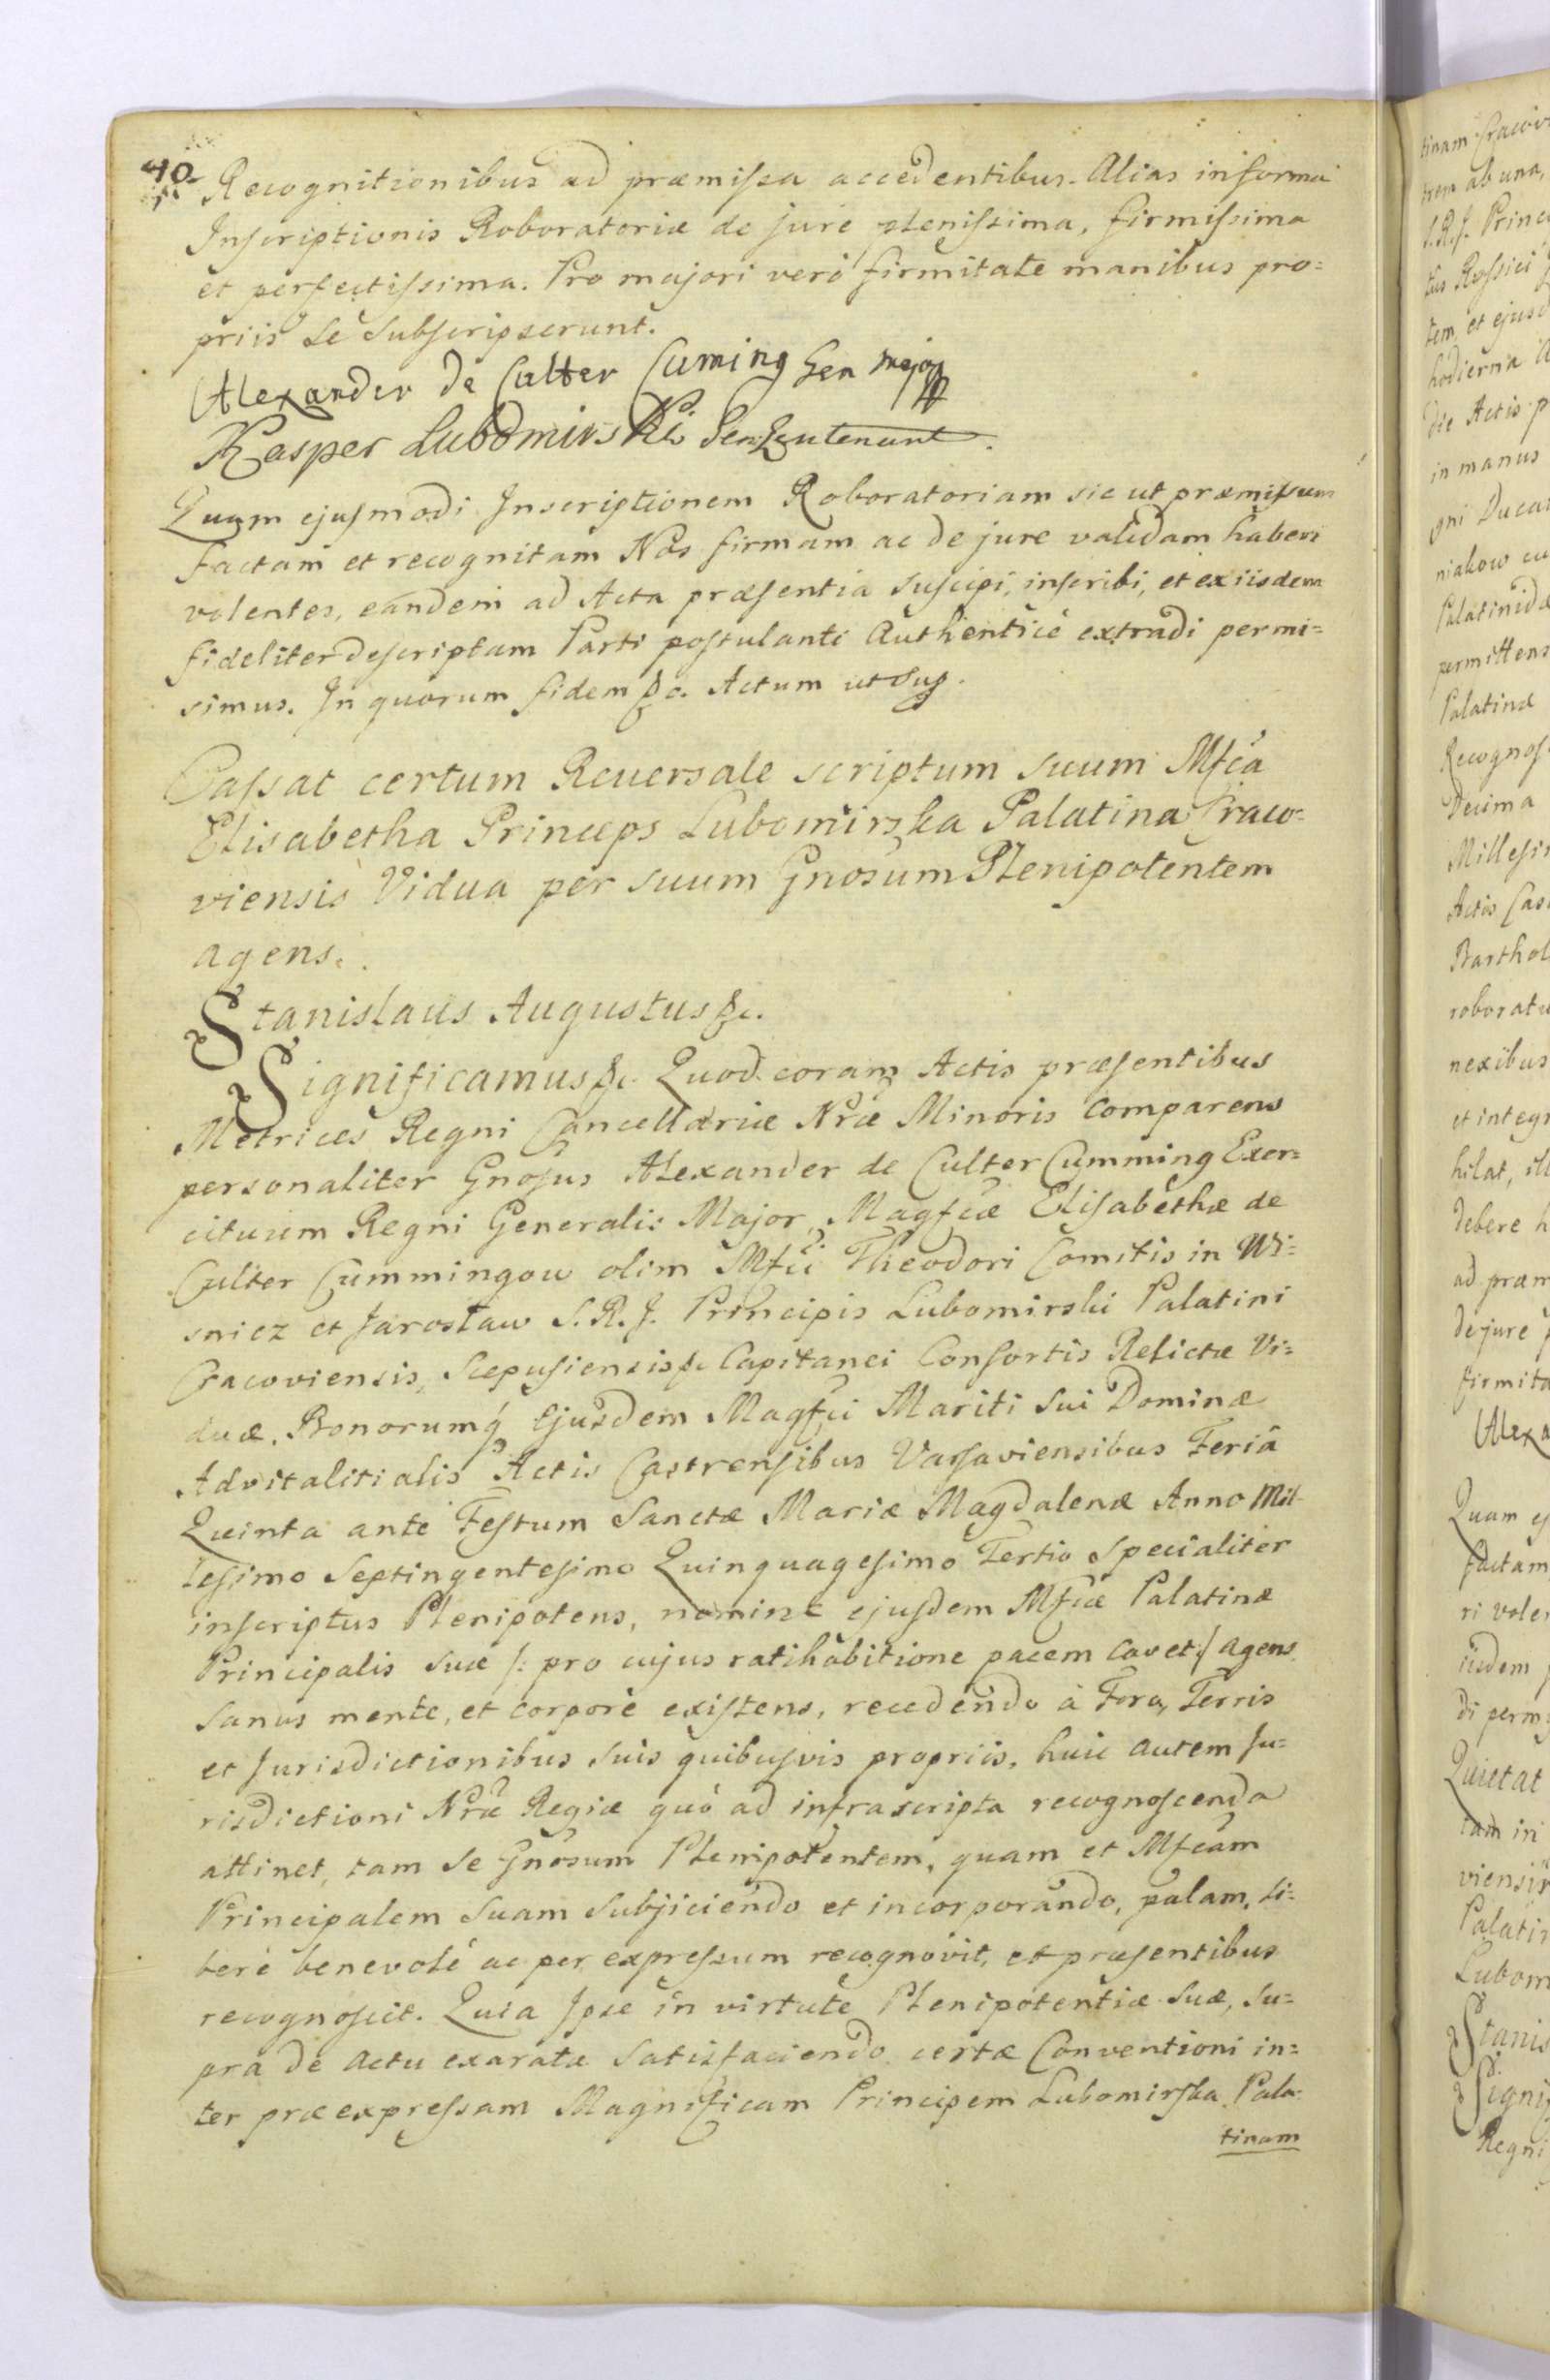 40
Recognitionibus ad præmissa accedentibus. Alias in forma
Inscriptionis Roboratoriæ de jure plenissima, firmissima
et perfectissima. Pro majori verò firmitate manibus pro=
priis se subscripserunt.
Alexander de Culter Cuming Gen major
Kasper Lubomirski Gen Leutenant.
Quam ejusmodi Inscriptionem Roboratoriam sic ut præmissum
factam et recognitam Nos firmam ac de jure validam haberi
volentes, eandem ad Acta præsentia suscipi, inscribi, et ex iisdem
fideliter descriptam Parti postulanti Authenticè extradi permi=
simus. In quorum fidem &c. Actum ut sup.
Cassat certum Reversale scriptum suum Mfca
Elisabetha Princeps Lubomirska Palatina Craco=
viensis Vidua per suum Gnosum Plenipotentem
agens.
Stanislaus Augustus &c.
Significamus &c. Quod coram Actis præsentibus
Metrices Regni Cancellariæ Nræ Minoris comparens
personaliter Gnosus Alexander de Culter Cumming Exer=
cituum Regni Generalis Major, Magfcæ Elisabethæ de
Culter Cummingow olim Mfci Theodori Comitis in Wi=
snicz et Jarosław S. R. J. Principis Lubomirski Palatini
Cracoviensis, Scepusiensis &c Capitanei Consortis Relictæ Vi=
duæ, Bonorumq́ Ejusdem Magfci Mariti sui Dominæ
Advitalitialis Actis Castrensibus Varsaviensibus Feriâ
Quinta ante Festum Sanctæ Mariæ Magdalenæ Anno Mil=
lesimo Septingentesimo Quinquagesimo Tertio specialiter
inscriptus Plenipotens, nomine ejusdem Mfcæ Palatinæ
Principalis suæ /: pro cujus ratihabitione pacem cavet :/ agens.
sanus mente, et corpore existens, recedendo à Foro, Terris
et Jurisdictionibus suis quibusvis propriis, huic autem Ju=
risdictioni Nræ Regiæ quò ad infrascripta recognoscenda
attinet, tam se Gnosum Plenipotentem, quam et Mfcam
Principalem suam subjiciendo et incorporando, palam, li=
berè benevolè ac per expressum recognovit, et præsentibus
recognoscit. Quia Ipse in virtute Plenipotentiæ suæ, su=
pra de actu exaratæ satisfaciendo certæ Conventioni in=
ter præexpressam Magnificam Principem Lubomirska Pala=
tinam
tinam Cracovi
trem ab una,
S. R. J. Princi
tus Rossici
tem, et ejusd
hodierna A
die Actis p
in manus
gni Ducat
niakow cu
Palatinidæ
permittens
Palatinæ
Recognos
Decima
Millesi
Actis Cas
Barthol
roboratu
nexibus
et integr
hilat, ill
debere h
ad præm
de jure p
firmita
Alexa
Quam ej
factam
ri vole
iisdem
di perm
Quietat
tam in
viensi
Palatin
Lubom
Stanis
Signif
Regni